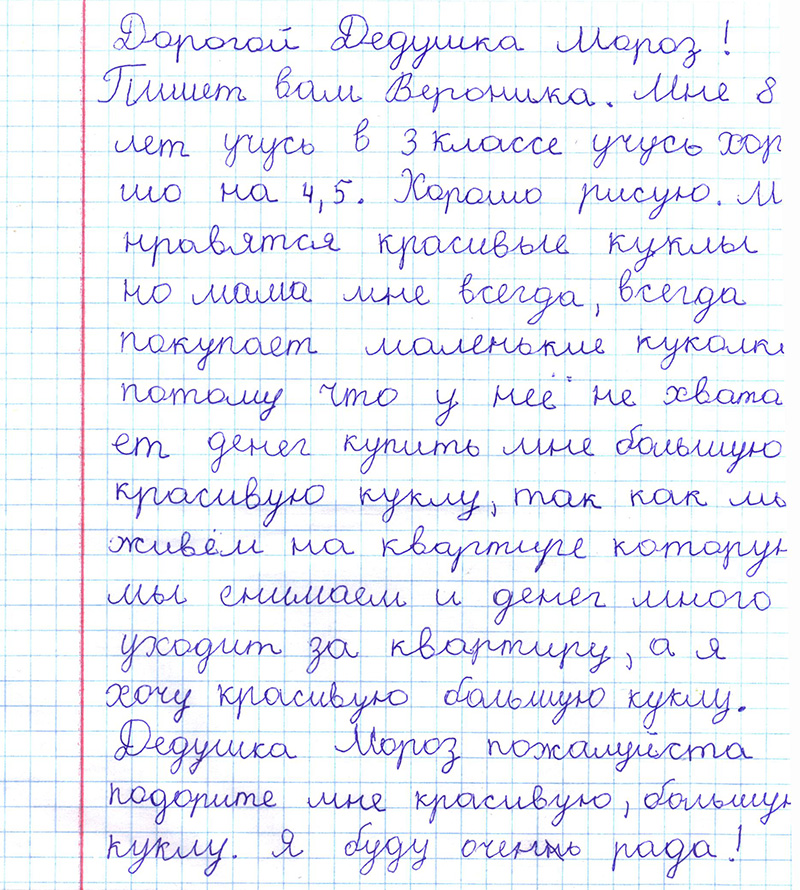 Дорогой Дедушка Мороз!
Пишет вам Вероника. Мне 8
лет учусь в 3 классе учусь хор
шо на 4,5. Хорошо рисую. М
нравятся красивые куклы
но мама мне всегда, всегда
покупает маленькие куколки
потому что у неё не хвата
ет денег купить мне большую
красивую куклу, так как мы
живём на квартире которую
мы снимаем и денег много
уходит за квартиру, а я
хочу красивую большую куклу.
Дедушка Мороз пожалуйста
подарите мне красивую, большую
куклу. Я буду очень рада!